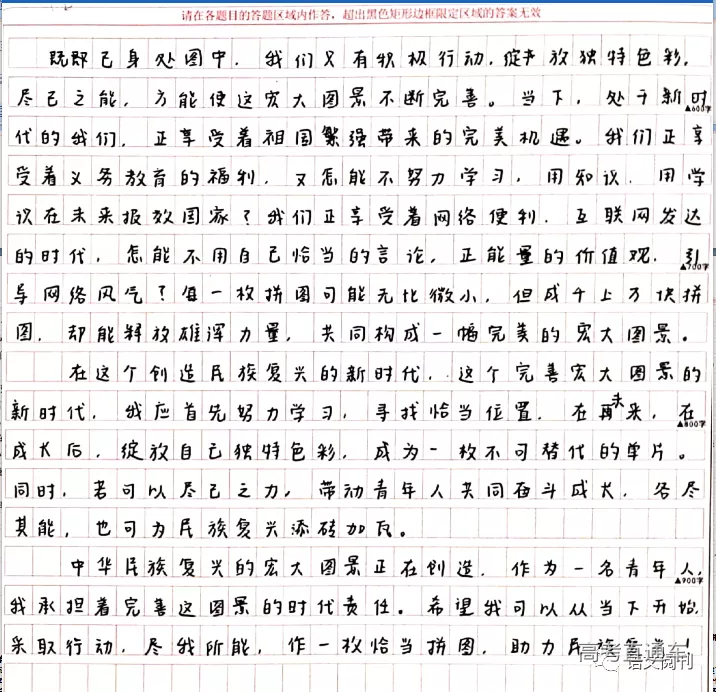 请在各题目的答题区域内作答，超出黑色矩形边框限定区域的答案无效
既即已身处图中，我们又有积极行动，绽放独特色彩，
尽己之能，方能使这宏大图景不断完善。当下，处于新时
▲600字
代的我们，正享受着祖国繁强带来的完美机遇。我们正享
受着义务教育的福利，又怎能不努力学习，用知识、用学
识在未来报效国家？我们正享受着网络便利，互联网发达
的时代，怎能不用自己恰当的言论，正能量的价值观，引
▲700字
导网络风气？每一枚拼图可能无比微小，但成千上万块拼
图，却能释放雄浑力量，共同构成一幅完美的宏大图景。
在这个创造民族复兴的新时代，这个完善宏大图景的
新时代，我应首先努力学习，寻找恰当位置，在未来，在
▲800字
成长后，绽放自己独特色彩，成为一枚不可替代的单片。
同时，若可以尽己之力，带动青年人共同奋斗成长，各尽
其能，也可为民族复兴添砖加瓦。
中华民族复兴的宏大图景正在创造，作为一名青年人，
▲900字
我承担着完善这图景的时代责任。希望我可以从当下开始，
采取行动，尽我所能，作一枚恰当拼图，助力民族复兴！
高考直通车
语文阅刊